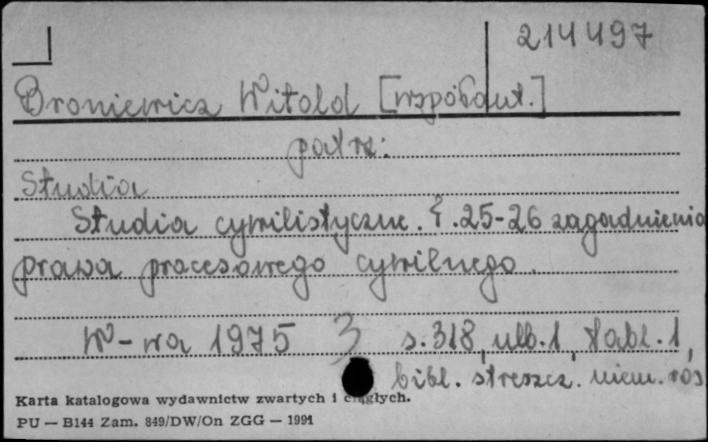 214497
Broniewicz Witold [współaut.]
patrz:
Studia
Studia cywilistyczne. T.25-26 zagadnienia
prawa procesowego cywilnego.
W-wa 1975 s.318, nlb.1, tabl.1,
bibl. streszcz. niem. ros
Karta katalogowa wydawnictw zwartych i ciągłych.
PU — B144 Zam. 849/DW/On ZGG — 1991